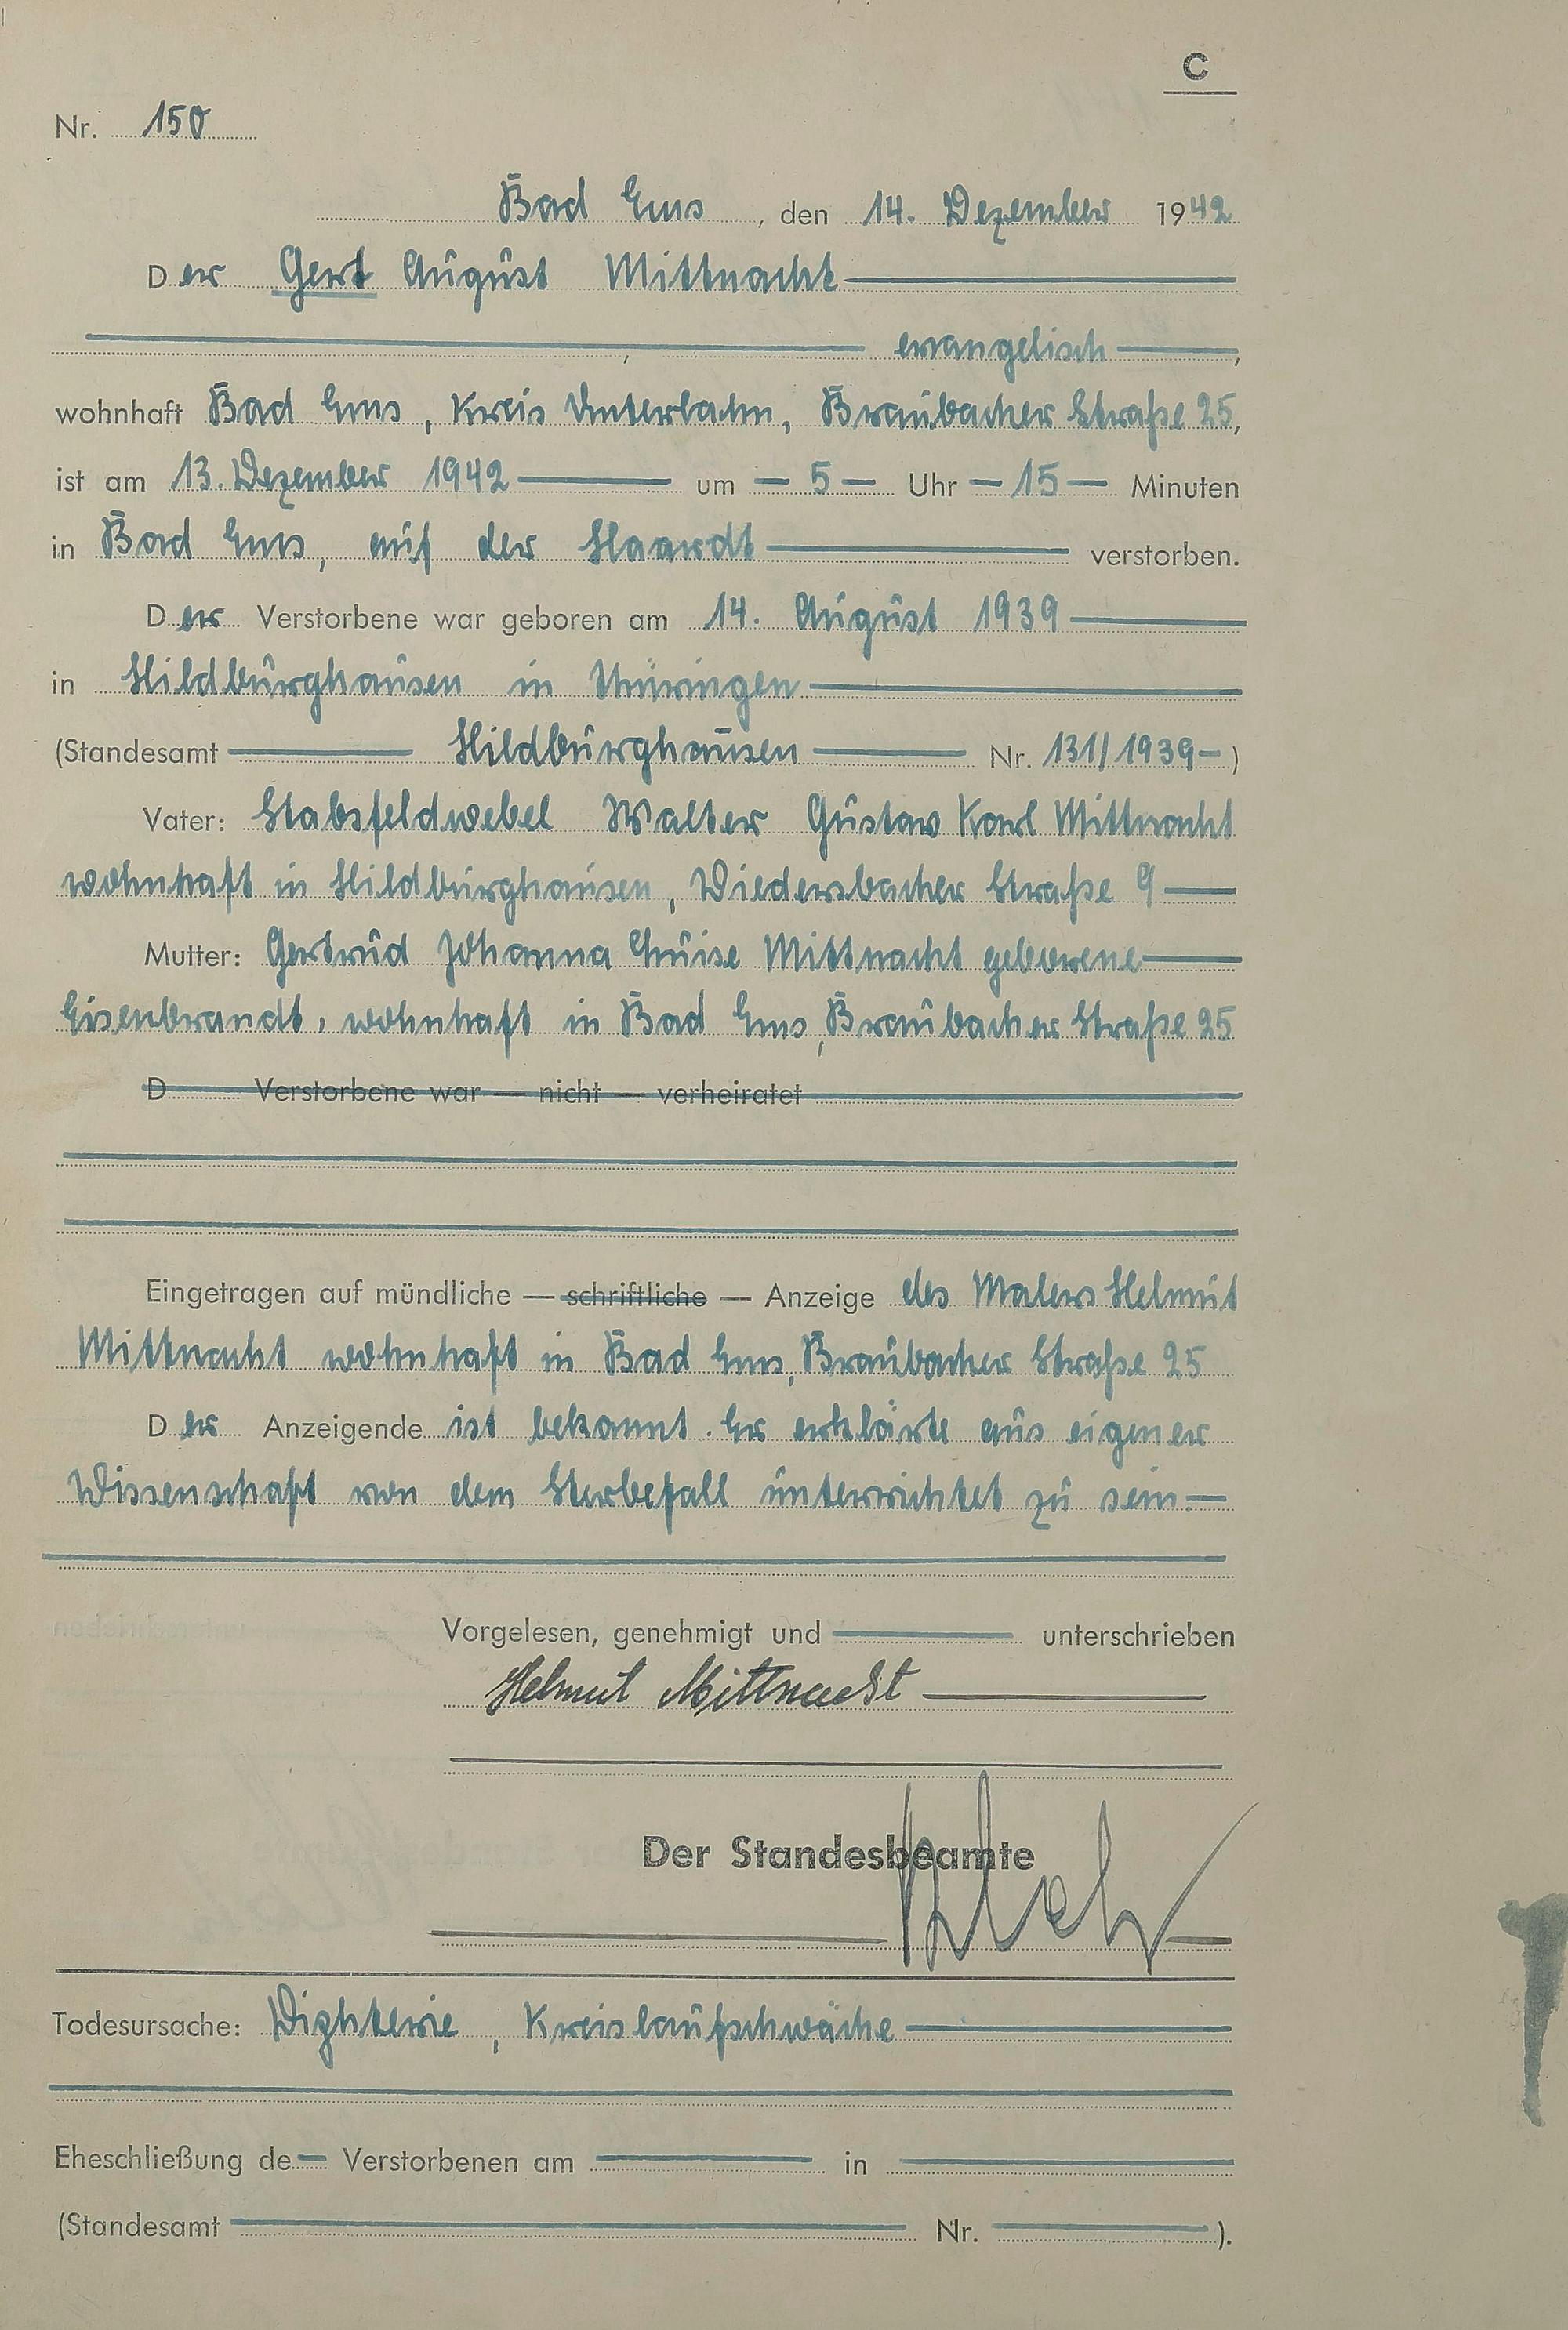 C
Nr. 150
Bad Ems, den 14. Dezember 1942
Der Gert August Mittnacht
evangelisch,
wohnhaft Bad Ems, Kreis Unterlahn, Braubacher Straße 25,
ist am 13. Dezember 1942 um 5 Uhr 15 Minuten
in Bad Ems, auf der Haardt verstorben.
Der Verstorbene war geboren am 14. August 1939
in Hildburghausen in Thüringen
(Standesamt Hildburghausen Nr. 131/1939)
Vater: Stabsfeldwebel Walter Gustav Karl Mittnacht
wohnhaft in Hildburghausen, Wiedersbacher Straße 9
Mutter: Gertrud Johanna Luise Mittnacht geborene
Eisenbrandt, wohnhaft in Bad Ems, Braubacher Straße 25
D Verstorbene war — nicht — verheiratet
Eingetragen auf mündliche — schriftliche — Anzeige des Malers Helmut
Mittnacht wohnhaft in Bad Ems, Braubacher Straße 25
Der Anzeigende ist bekannt. Er erklärte aus eigener
Wissenschaft von dem Sterbefall unterrichtet zu sein.
Vorgelesen, genehmigt und unterschrieben
Helmut Mittnacht
Der Standesbeamte
Todesursache: Diphterie, Kreislaufschwäche
Eheschließung de Verstorbenen am in
(Standesamt Nr. ).